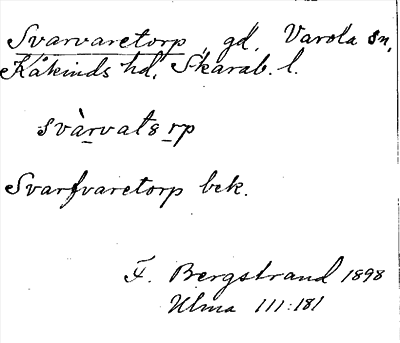 Svarvaretorp, gd, Varola sn,
Kåkinds hd, Skarab. l.
svàrvatərp
Svarfvaretorp bek.
F. Bergstrand 1898
Ulma 111:181